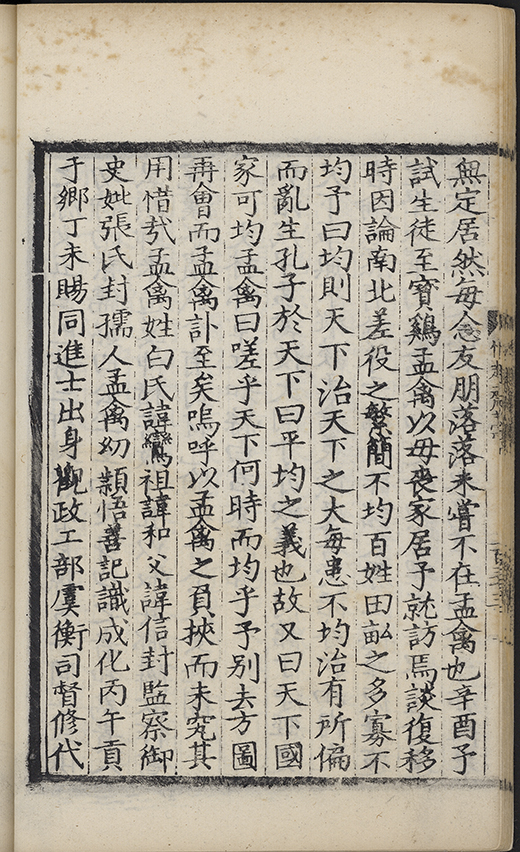 無定居然每念友朋落落未嘗不在孟禽也辛酉予
試生徒至寳鷄孟禽以母喪家居予就訪焉談復移
時因論南北差役之繁簡不均百姓田畆之多寡不
均予曰均則天下治天下之大每患不均治有所偏
而亂生孔子於天下曰平均之義也故又曰天下國
家可均孟禽曰嗟乎天下何時而均乎予別去方圖
再會而孟禽訃至矣嗚呼以孟禽之負挾而未究其
用惜㢤孟禽姓白氏諱鸞祖諱和父諱信封監察御
史妣張氏封孺人孟禽幼頴悟善記識成化丙午貢
于鄉丁未賜同進士出身觀政工部虞衡司督修代